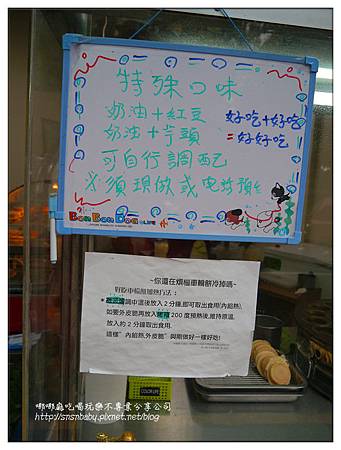 特殊口味
奶油+紅豆
奶油+芋頭
好吃+好吃
=好好吃
可自行調配
※須現做或电話預約
Bon Bon Dog
~你還在煩惱車輪餅冷掉嗎~
調中溫後放入2分鐘,即可取出食用(內餡熱).
如要外皮脆再放入 200度預熱後,維持原溫,
放入約2分鐘取出食用.
這樣"內餡熱,外皮脆"與剛做好一樣好吃!
COLOR LIFE
嘟嘟嘉吃喝玩樂不專業分享公司
http://snsnbaby.pixnet.net/blog